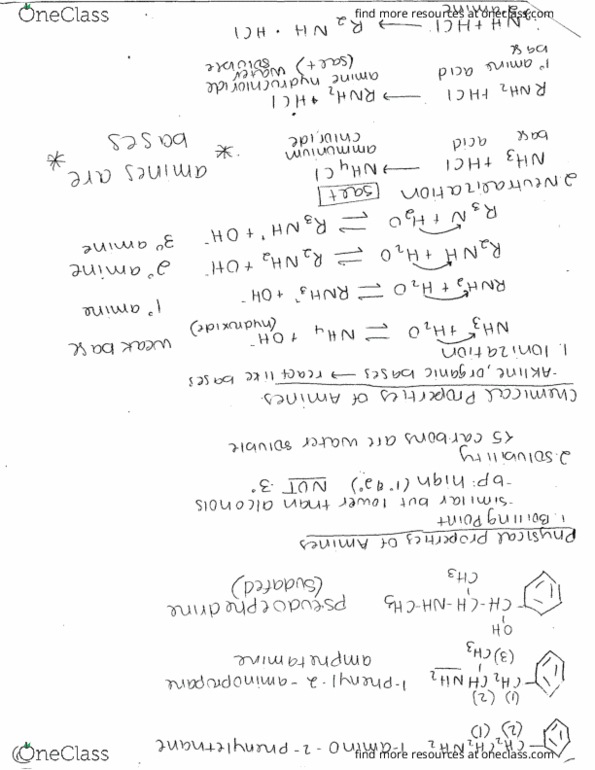 OneClass find more resources at oneclass.com
(2) (1)
CH2CH2NH2 1-amino-2-phenylethane
(1) (2)
CH2CHNH2 1-phenyl-2-aminopropane
(3) CH3 amphetamine
OH
CH-CH-NH-CH3 pseudoephedrine
CH3 (sudafed)
Physical properties of Amines
1. Boiling Point
-similar but lower than alcohols
-bp: high (1° & 2°) NOT 3°
2. solubility
≤5 carbons are water soluble
Chemical Properties of Amines
-Akline, organic bases → react like bases
1. Ionization
NH3 + H2O ⇌ NH4 + OH- weak base
(hydroxide)
RNH2 + H2O ⇌ RNH3+ + OH- 1° amine
R2NH + H2O ⇌ R2NH2 + OH- 2° amine
R3N + H2O ⇌ R3NH+ + OH- 3° amine
2. Neutralization salt
NH3 + HCl → NH4Cl
base acid ammonium chloride
* amines are bases *
RNH2 + HCl → RNH3 + HCl
1° amine acid amine hydrochloride
base (salt) water soluble
2° amine
NH + HCl → R2 NH · HCl
OneClass find more resources at oneclass.com